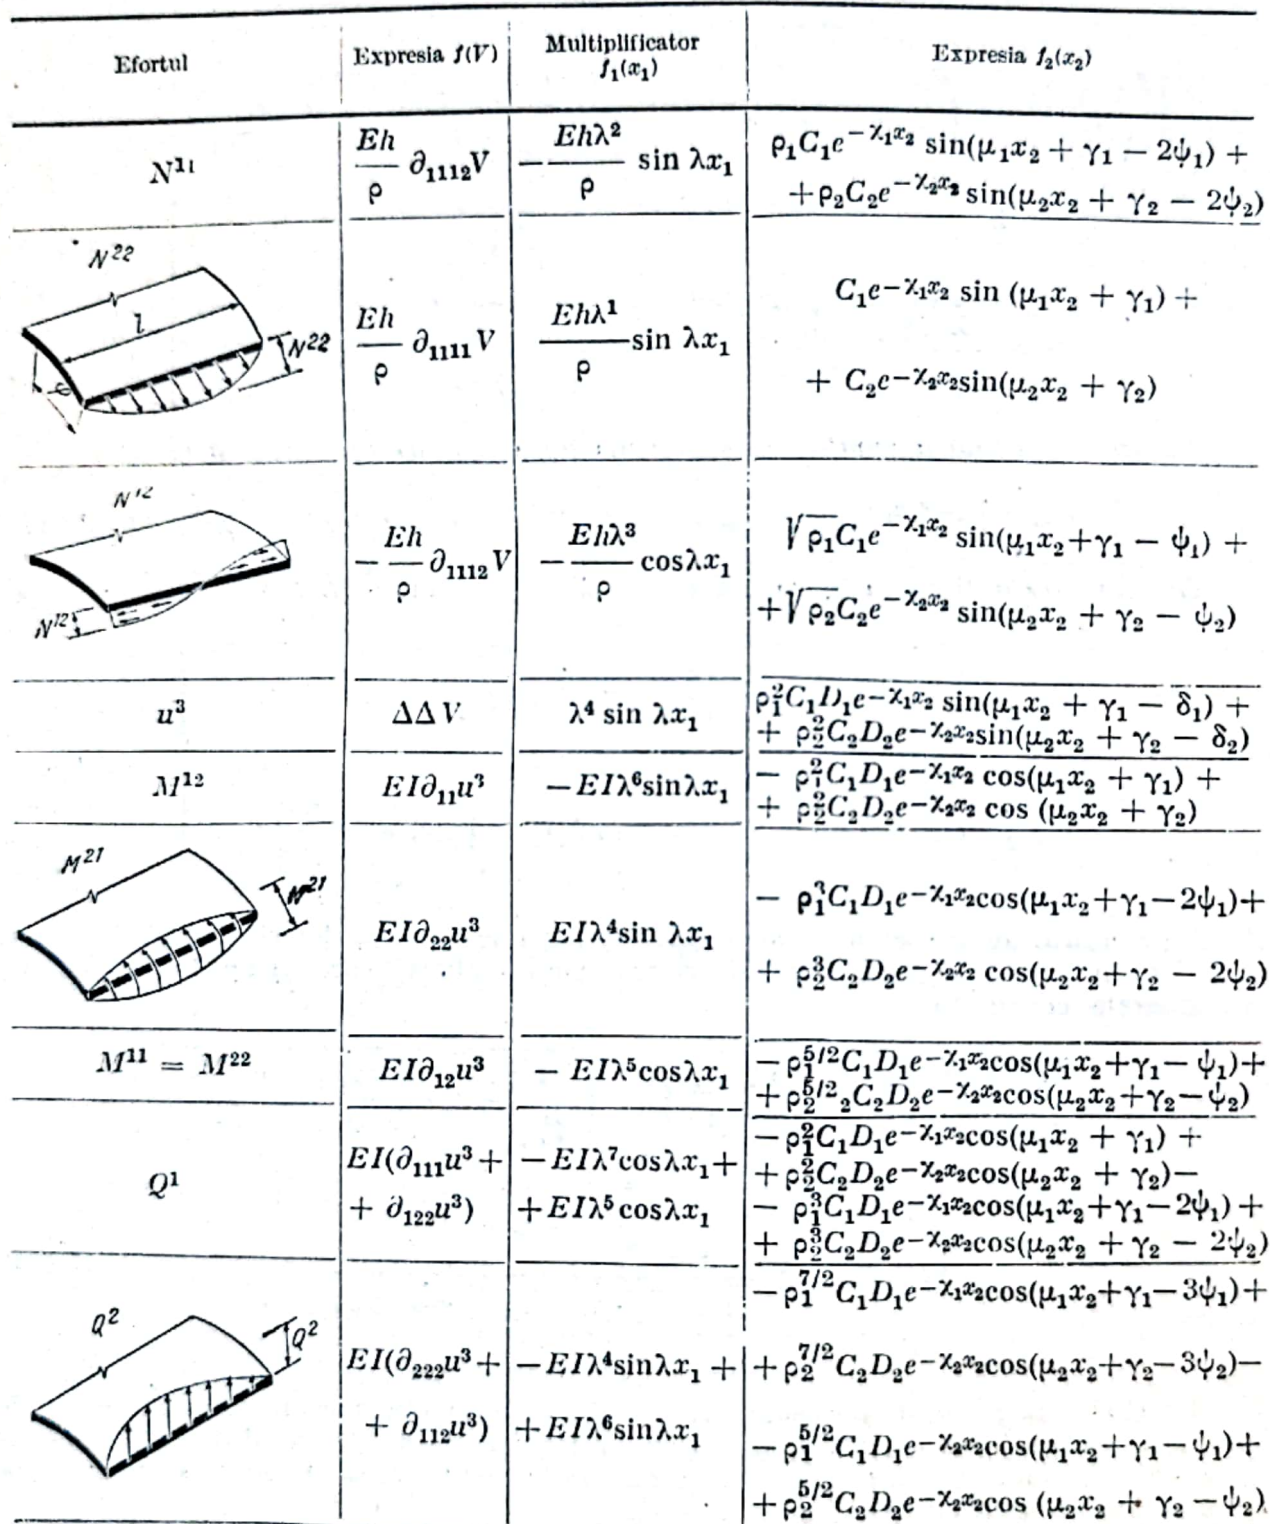 Efortul | Expresia f(V) | Multiplificator f₁(x₁) | Expresia f₂(x₂)
N¹¹ | Eh/ρ ∂₁₁₁₂V | −Ehλ²/ρ sin λx₁ | ρ₁C₁e^(−χ₁x₂) sin(μ₁x₂ + γ₁ − 2ψ₁) +
+ρ₂C₂e^(−χ₂x₂) sin(μ₂x₂ + γ₂ − 2ψ₂)
N²²
l
N²² | Eh/ρ ∂₁₁₁₁V | Ehλ¹/ρ sin λx₁ | C₁e^(−χ₁x₂) sin (μ₁x₂ + γ₁) +
+ C₂e^(−χ₂x₂) sin(μ₂x₂ + γ₂)
N¹²
N¹² | −Eh/ρ ∂₁₁₁₂V | −Ehλ³/ρ cosλx₁ | √ρ₁C₁e^(−χ₁x₂) sin(μ₁x₂+γ₁ − ψ₁) +
+√ρ₂C₂e^(−χ₂x₂) sin(μ₂x₂ + γ₂ − ψ₂)
u³ | ΔΔV | λ⁴ sin λx₁ | ρ₁²C₁D₁e^(−χ₁x₂) sin(μ₁x₂ + γ₁ − δ₁) +
+ ρ₂²C₂D₂e^(−χ₂x₂) sin(μ₂x₂ + γ₂ − δ₂)
M¹² | EI∂₁₁u³ | −EIλ⁶sinλx₁ | − ρ₁²C₁D₁e^(−χ₁x₂) cos(μ₁x₂ + γ₁) +
+ ρ₂²C₂D₂e^(−χ₂x₂) cos (μ₂x₂ + γ₂)
M²¹
M²¹ | EI∂₂₂u³ | EIλ⁴sin λx₁ | − ρ₁³C₁D₁e^(−χ₁x₂)cos(μ₁x₂+γ₁−2ψ₁)+
+ ρ₂³C₂D₂e^(−χ₂x₂) cos(μ₂x₂+γ₂ − 2ψ₂)
M¹¹ = M²² | EI∂₁₂u³ | − EIλ⁵cosλx₁ | −ρ₁^(5/2)C₁D₁e^(−χ₁x₂)cos(μ₁x₂+γ₁−ψ₁)+
+ρ₂^(5/2)₂C₂D₂e^(−χ₂x₂)cos(μ₂x₂+γ₂−ψ₂)
Q¹ | EI(∂₁₁₁u³ + | −EIλ⁷cosλx₁+ | −ρ₁²C₁D₁e^(−χ₁x₂)cos(μ₁x₂ + γ₁) +
+ρ₂²C₂D₂e^(−χ₂x₂)cos(μ₂x₂ + γ₂)−
+ ∂₁₂₂u³) | +EIλ⁵cosλx₁ | − ρ₁³C₁D₁e^(−χ₁x₂)cos(μ₁x₂+γ₁−2ψ₁) +
+ ρ₂³C₂D₂e^(−χ₂x₂)cos(μ₂x₂ + γ₂ − 2ψ₂)
−ρ₁^(7/2)C₁D₁e^(−χ₁x₂)cos(μ₁x₂+γ₁−3ψ₁)+
Q²
Q² | EI(∂₂₂₂u³ + | −EIλ⁴sinλx₁ + | +ρ₂^(7/2)C₂D₂e^(−χ₂x₂)cos(μ₂x₂+γ₂−3ψ₂)−
+ ∂₁₁₂u³) | +EIλ⁶sinλx₁ | −ρ₁^(5/2)C₁D₁e^(−χ₂x₂)cos(μ₁x₂+γ₁−ψ₁)+
+ρ₂^(5/2)C₂D₂e^(−χ₂x₂)cos (μ₂x₂ + γ₂ −ψ₂)